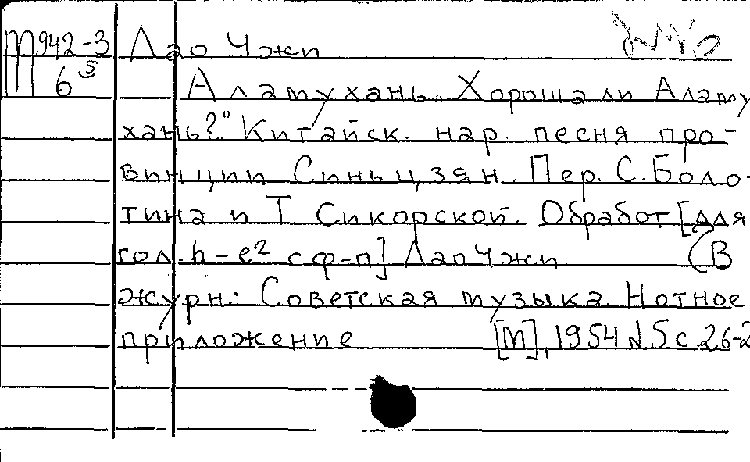 М942-3 Лао Чжи
6
Алатухань. Хороша ли Алату
хань?". Китайск. нар. песня про-
винции Синьцзян. Пер. С. Боло-
тина и Т. Сикорской. Обработ. [для
гол. h-e² с ф-п] Лао Чжи (В
журн.: Советская музыка. Нотное
приложение [М], 1954 №5 с 26-2